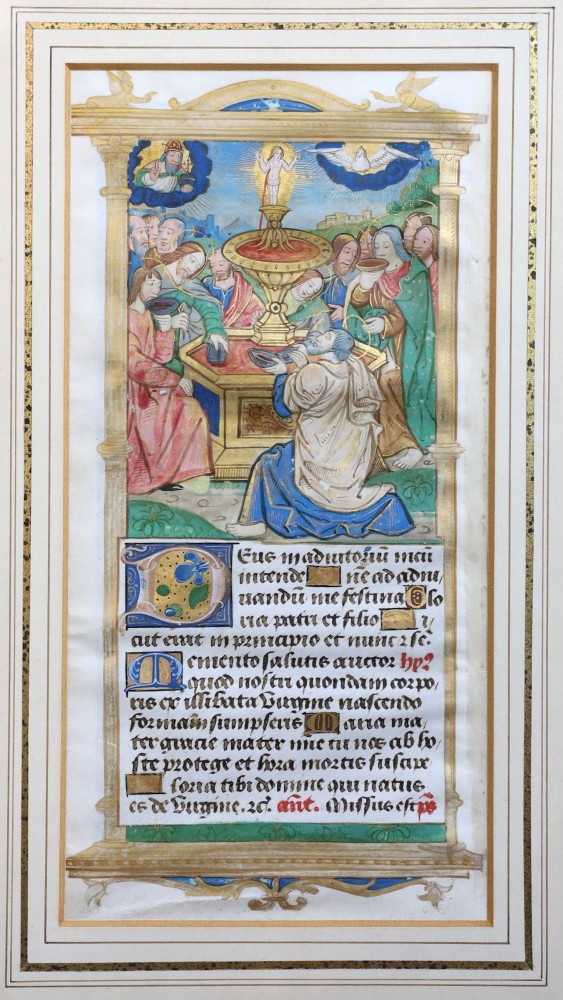 Deus in adiutoriū meū
intende ne ad adiu/
uandum me festina Glo
ria patri et filio Si/
cut erat in principio et nunc ⁊ se.
Memento salutis auctor hy?
quod nostri quondam corpo/
ris ex illibata Virgine nascendo
formam sumpseris Maria ma/
ter gracie mater mīe tu nos ab ho/
ste protege et hora mortis suscipe
loria tibi domine qui natus
es de Virgine. ⁊c. añt. Missus est ps